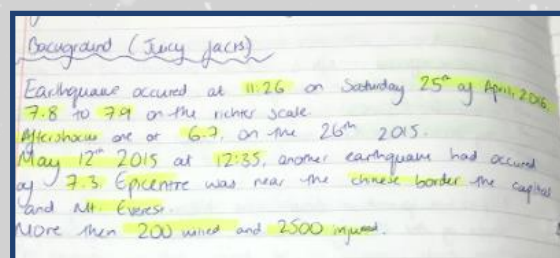 Background (Juicy facts)
Earthquake occured at 11:26 on Saturday 25th of April, 2015,
7.8 to 7.9 on the richter scale.
Aftershocks one at 6.7, on the 26th 2015.
May 12th 2015 at 12:35, another earthquake had occured
of 7.3. Epicentre was near the chinese border the capital
and Mt. Everest.
More then 200 killed and 2500 injured.